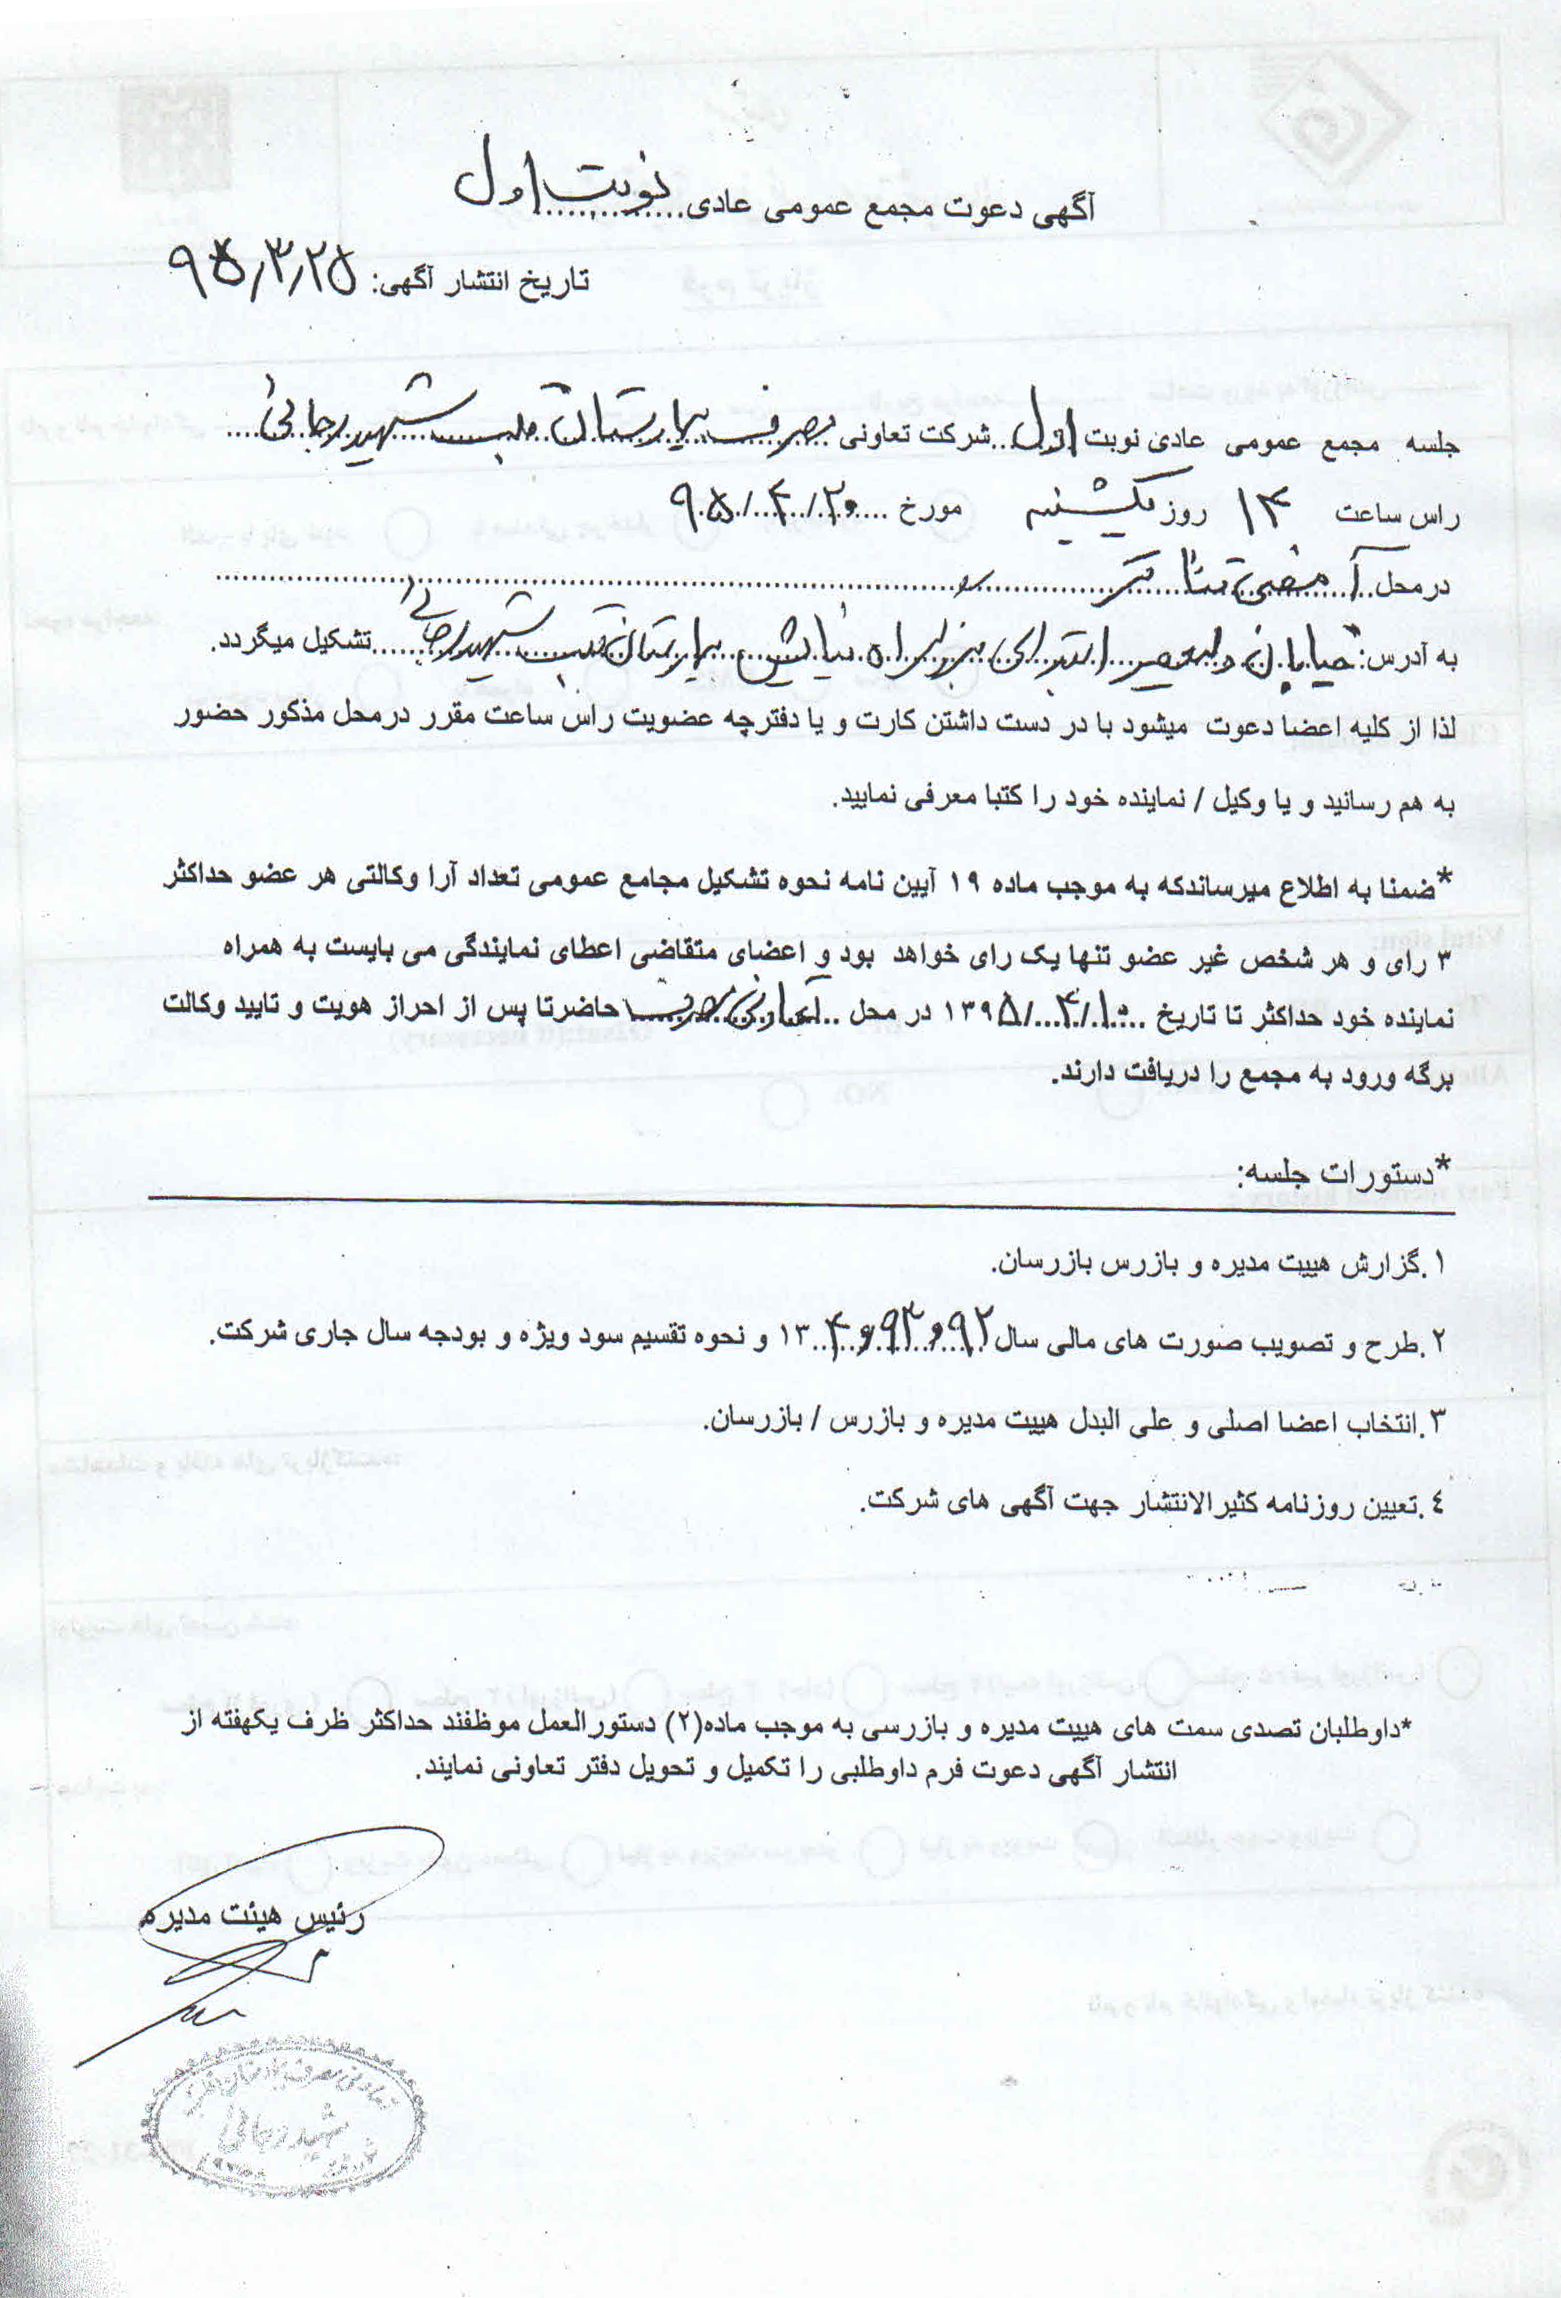 آگهی دعوت مجمع عمومی عادی نوبت اول
تاریخ انتشار آگهی: ۹۵/۳/۲۵
جلسه مجمع عمومی عادی نوبت اول شرکت تعاونی مصرف بیمارستان قلب شهید رجائی
راس ساعت ۱۴ روز یکشنبه مورخ ۹۵/۴/۲۰
در محل آمفی تئاتر
به آدرس: خیابان ولیعصر ابتدای بزرگراه نیایش بیمارستان قلب شهید رجائی تشکیل میگردد.
لذا از کلیه اعضا دعوت میشود با در دست داشتن کارت و یا دفترچه عضویت راس ساعت مقرر درمحل مذکور حضور
به هم رسانید و یا وکیل / نماینده خود را کتبا معرفی نمایید.
*ضمنا به اطلاع میرساندکه به موجب ماده ۱۹ آیین نامه نحوه تشکیل مجامع عمومی تعداد آرا وکالتی هر عضو حداکثر
۳ رای و هر شخص غیر عضو تنها یک رای خواهد بود و اعضای متقاضی اعطای نمایندگی می بایست به همراه
نماینده خود حداکثر تا تاریخ ۱۳۹۵/۴/۱۰ در محل تعاونی مصرف حاضرتا پس از احراز هویت و تایید وکالت
برگه ورود به مجمع را دریافت دارند.
*دستورات جلسه:
۱.گزارش هییت مدیره و بازرس بازرسان.
۲.طرح و تصویب صورت های مالی سال ۹۲ و ۹۳ و ۱۳۰۰۴ و نحوه تقسیم سود ویژه و بودجه سال جاری شرکت.
۳.انتخاب اعضا اصلی و علی البدل هییت مدیره و بازرس / بازرسان.
٤.تعیین روزنامه کثیرالانتشار جهت آگهی های شرکت.
*داوطلبان تصدی سمت های هییت مدیره و بازرسی به موجب ماده(۲) دستورالعمل موظفند حداکثر ظرف یکهفته از
انتشار آگهی دعوت فرم داوطلبی را تکمیل و تحویل دفتر تعاونی نمایند.
رئیس هیئت مدیره
تعاونی مصرف بیمارستان قلب
شهید رجائی